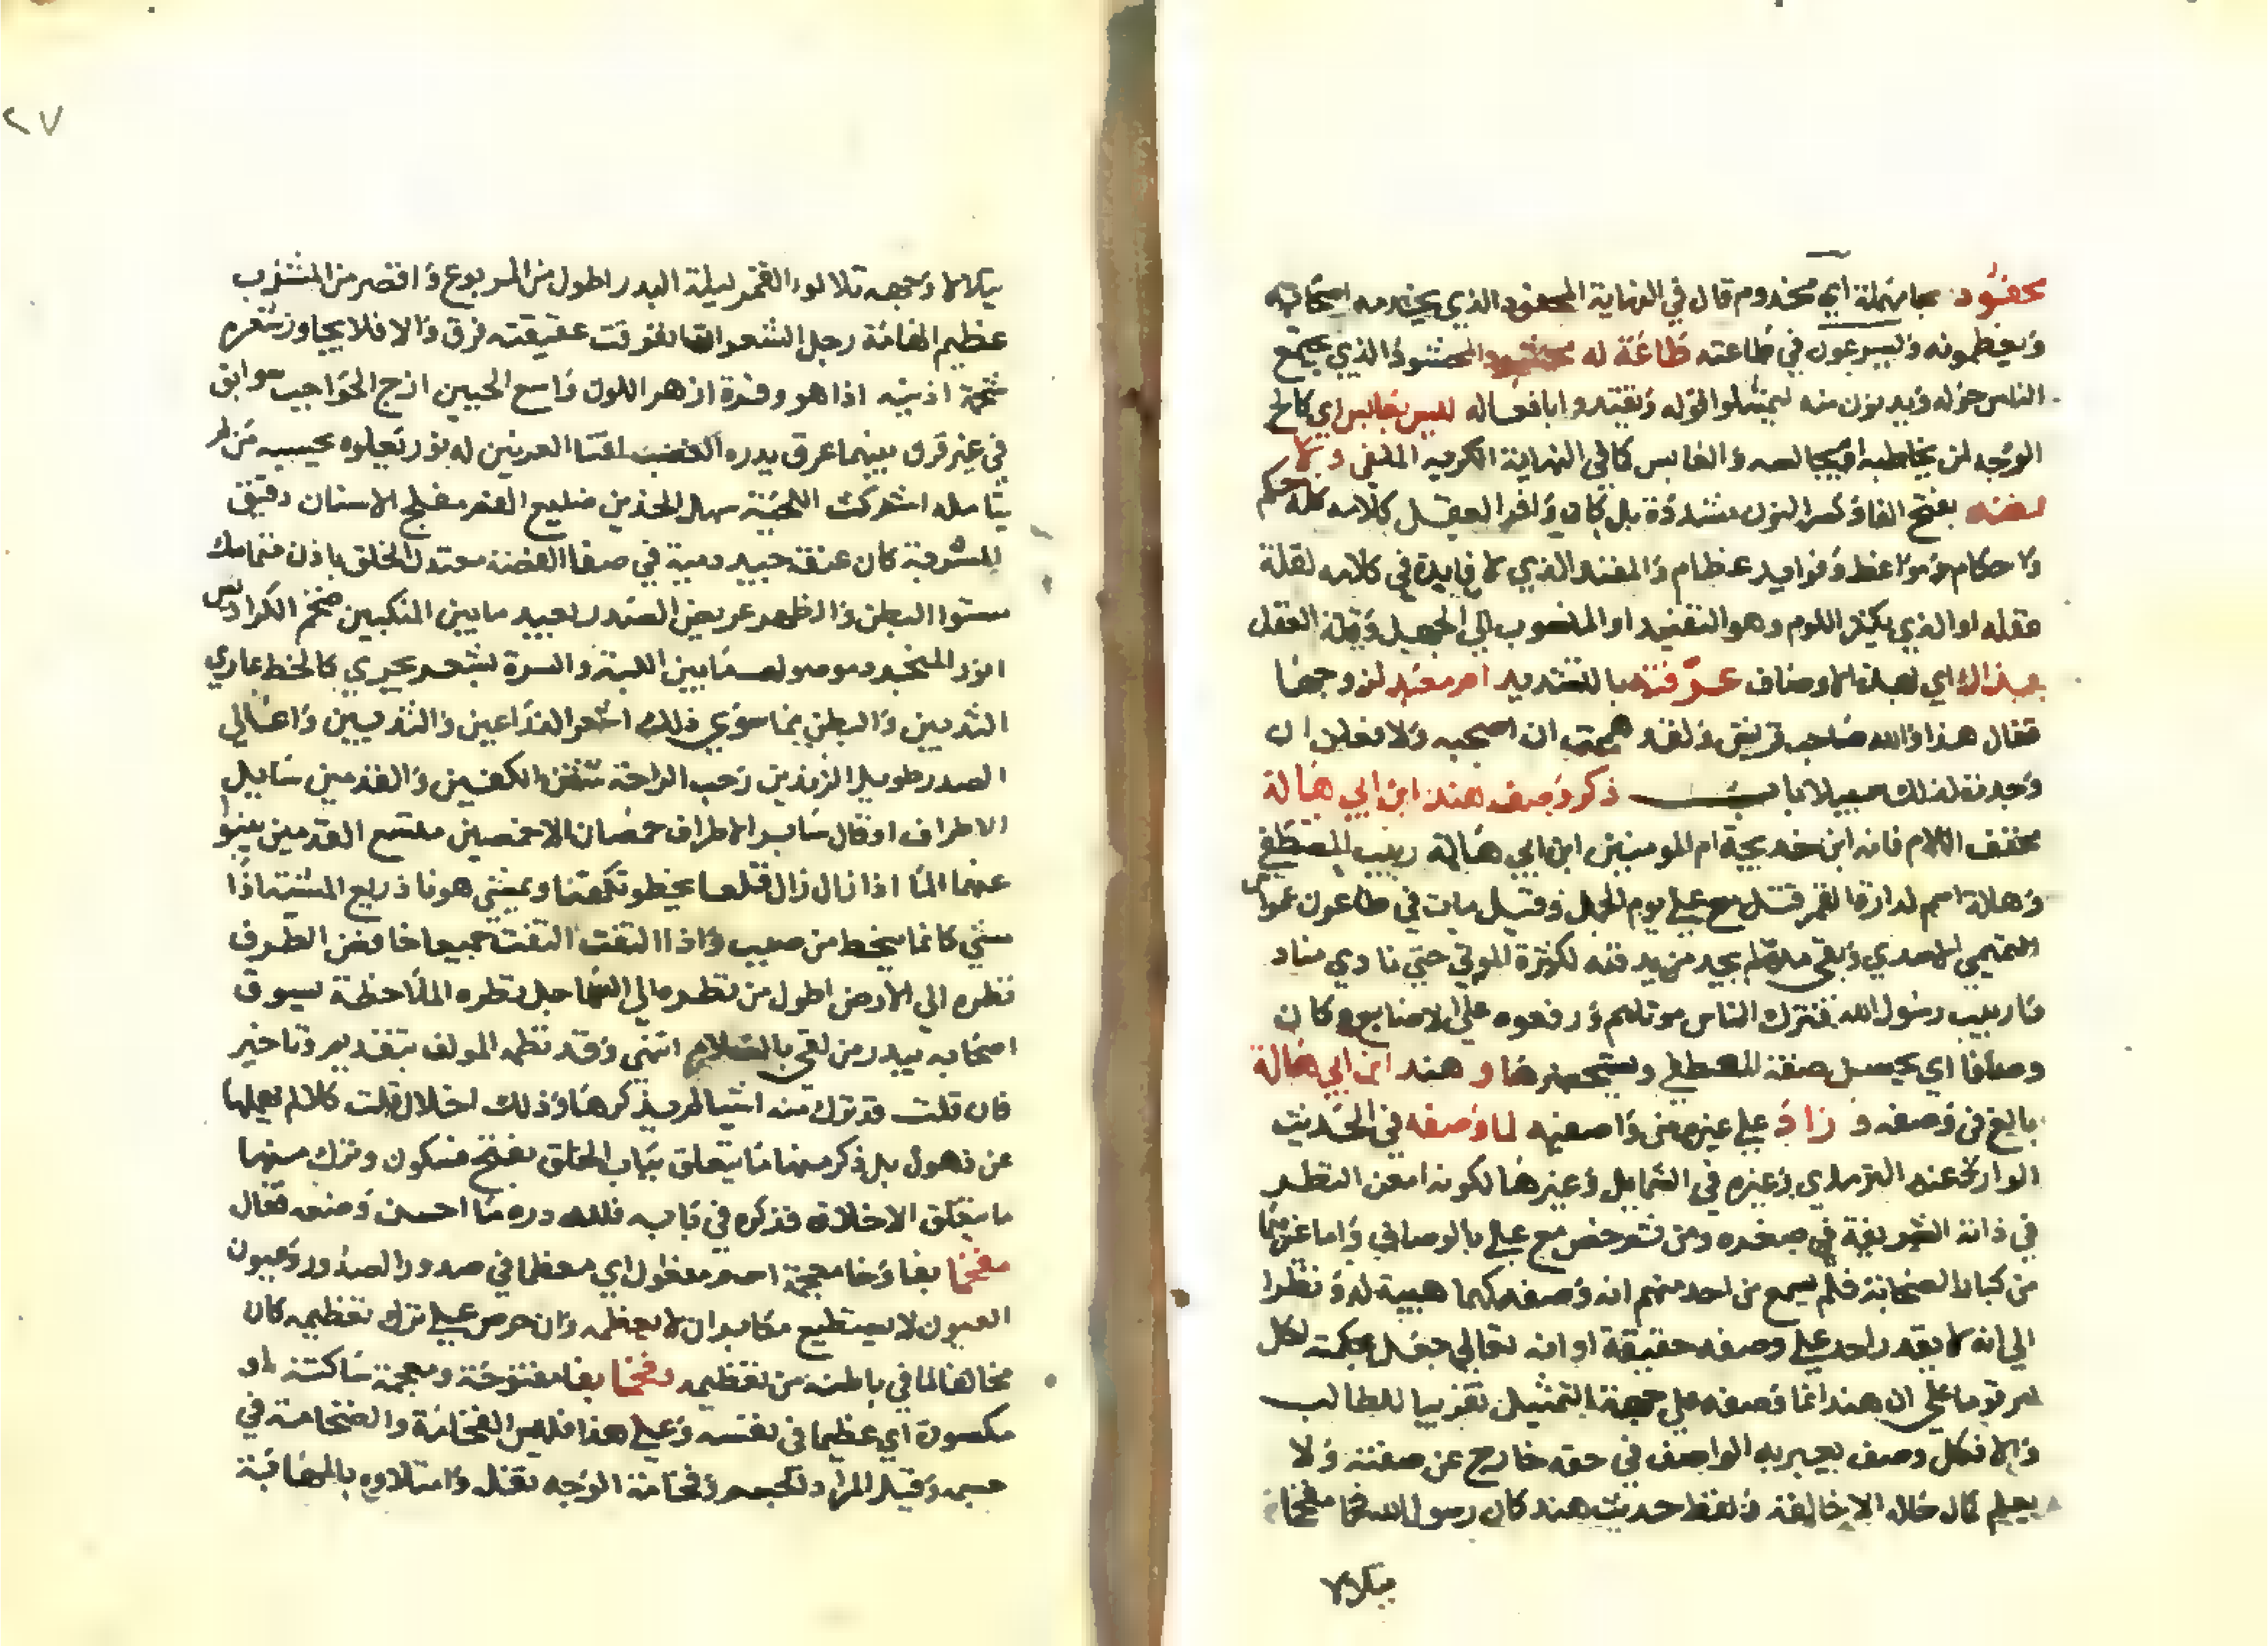 محفود بحا مهملة اي مخدوم قال في النهاية المحفود الذي يخدمه اصحابه
ويعظمونه ويسرعون في طاعته طاعة له والمحشود الذي يجتمع
الناس حوله ويدنون منه ليمتثلوا قوله ويقتدوا بافعاله ليس بعابس اي كالح
الوجه لمن يخاطبه او يجالسه والعابس كما في النهاية الكريه الملقى ولا
يفند بفتح الفا وكسر النون مشددة بل كان وافر العقل كلامه كله حكم
واحكام ومواعظ وفوايد عظام والمفند الذي لا فايدة في كلامه لقلة
عقله او الذي يكثر اللوم وهو التفنيد او المنسوب الى الجهل وقلة العقل
بهذا اي بهذه الاوصاف عرفته بالتشديد ام معبد لزوجها
فقال هذا والله صاحب قريش ولقد هممت ان اصحبه ولافعلن ان
وجدت لذلك سبيلا باب ذكر وصف هند ابن ابي هالة
مخفف اللام فانه ابن خديجة ام المومنين ابن ابي هالة ربيب المصطفى
وهالة اسم لدارة القمر قتل مع علي يوم الجمل وقيل مات في طاعون عمواس
التميمي الاسدي وبقي فلم يجد من يدفنه لكثرة الموتى حتى نادى مناد
وا ربيب رسول الله فترك الناس موتاهم ورفعوه على الاصابع وكان
وصافا اي يحسن صفة المصطفى ويستحضرها وهند ابن ابي هالة
بالغ في وصفه وزاد على غيره من واصفيه لما وصفه في الحديث
الوارد عند الترمذي وغيره في الشمايل وغيرها لكونه امعن النظر
في ذاته الشريفة في صغره ومن ثم خص مع علي بالوصافي واما غيرهما
من كبار الصحابة فلم يسمع من احد منهم انه وصفه كلها هيبة له ونظرا
الى انه لا يقدر احد على وصفه حقيقة او انه تعالى جعل لحكمته لكل
امر قوما على ان هندا انما وصفه على جهة التمثيل تقريبا للطالب
والا فكل وصف يعبر به الواصف في حقه خارج عن صفته ولا
يعلم كمال حاله الا خالقه ولفظ حديث هند كان رسول الله فخما مفخما
يتلالا
يتلالا وجهه تلالوا القمر ليلة البدر اطول من المربوع واقصر من المشذب
عظيم الهامة رجل الشعر ان انفرقت عقيقته فرق والا فلا يجاوز شعره
شحمة اذنيه اذا هو وفرة ازهر اللون واسع الجبين ازج الحواجب سوابق
في غير قرن بينهما عرق يدره الغضب اقنا العرنين له نور يعلوه يحسبه من لم
يتامله اشم كث اللحية سهل الخدين ضليع الفم مفلج الاسنان دقيق
المسربة كان عنقه جيد دمية في صفا الفضة معتدل الخلق بادن متماسك
مستوا البطن والظهر عريض الصدر بعيد ما بين المنكبين ضخم الكراديس
انور المتجرد موصول ما بين اللبة والسرة بشعر يجري كالخط عاري
الثديين والبطن مما سوى ذلك اشعر الذراعين والثديين واعالي
الصدر طويل الزندين رحب الراحة شثن الكفين والقدمين سايل
الاطراف او قال ساير الاطراف خمصان الاخمصين مسيح القدمين ينبوا
عنهما الما اذا زال زال قلعا يخطو تكفئا ويمشي هونا ذريع المشية اذا
مشى كانما ينحط من صبب واذا التفت التفت جميعا خافض الطرف
نظره الى الارض اطول من نظره الى السما جل نظره الملاحظة يسوق
اصحابه يبدر من لقي بالسلام انتهى وقد نظمه المولف بتقديم وتاخير
فان قلت قد ترك منه اشيا لم يذكرها وذلك اخلال قلت كلا لم يهملها
عن ذهول بل ذكر منها ما يتعلق بباب الخلق بفتح فسكون وترك منها
ما يتعلق الاخلاق فذكره في بابه فلله دره ما احسن وصنعه فقال
مفخما بفا وخا معجمة اسم مفعول اي معظما في صدور الصدور وعيون
العيون لا يستطيع مكابر ان لا يعظمه وان حرص على ترك تعظيمه كان
مخالفا لما في باطنه من تعظيمه وفخما بفا مفتوحة ومعجمة ساكنة او
مكسورة اي عظيما في نفسه وعلى هذا فليس الفخامة والضخامة في
جسمه وقيل المراد لجسمه وفخامة الوجه نبله وامتلاوه بالمهابة